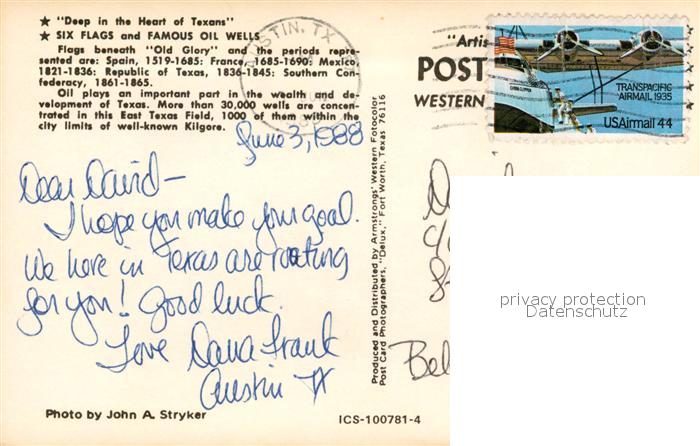 ★ "Deep in the Heart of Texans"
★ SIX FLAGS and FAMOUS OIL WELLS
Flags beneath "Old Glory" and the periods repre-
sented are: Spain, 1519-1685: France, 1685-1690: Mexico,
1821-1836: Republic of Texas, 1836-1845: Southern Con-
federacy, 1861-1865.
Oil plays an important part in the wealth and de-
velopment of Texas. More than 30,000 wells are concen-
trated in this East Texas Field, 1000 of them within the
city limits of well-known Kilgore.
AUSTIN, TX
"Artis
POST
WESTERN
CHINA CLIPPER
TRANSPACIFIC
AIRMAIL 1935
USAirmail 44
June 3, 1988
Dear David—
I hope you make your goal.
We here in Texas are rooting
for you! Good luck.
Love Dana Frank
Austin TX
Produced and Distributed by Armstrongs' Western Fotocolor
Post Card Photographers, "Delux," Fort Worth, Texas 76116
c/o
Bel
privacy protection
Datenschutz
Photo by John A. Stryker
ICS-100781-4